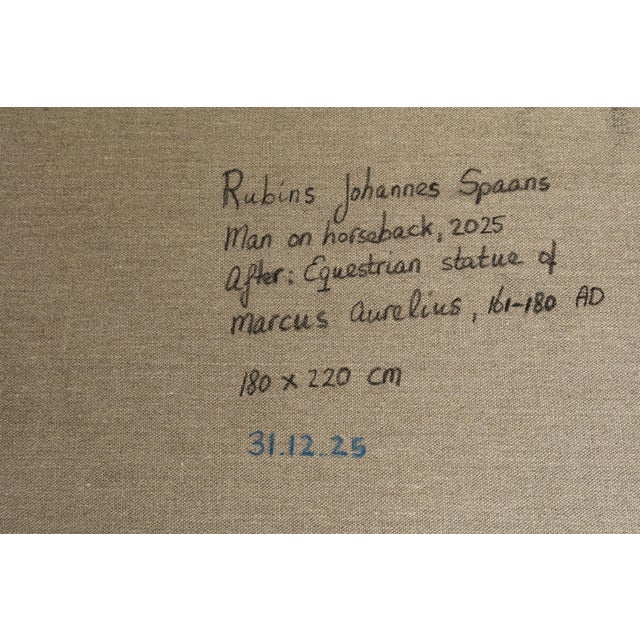 Rubins Johannes Spaans
Man on horseback, 2025
After: Equestrian statue of
Marcus Aurelius, 161-180 AD
180 x 220 cm
31.12.25